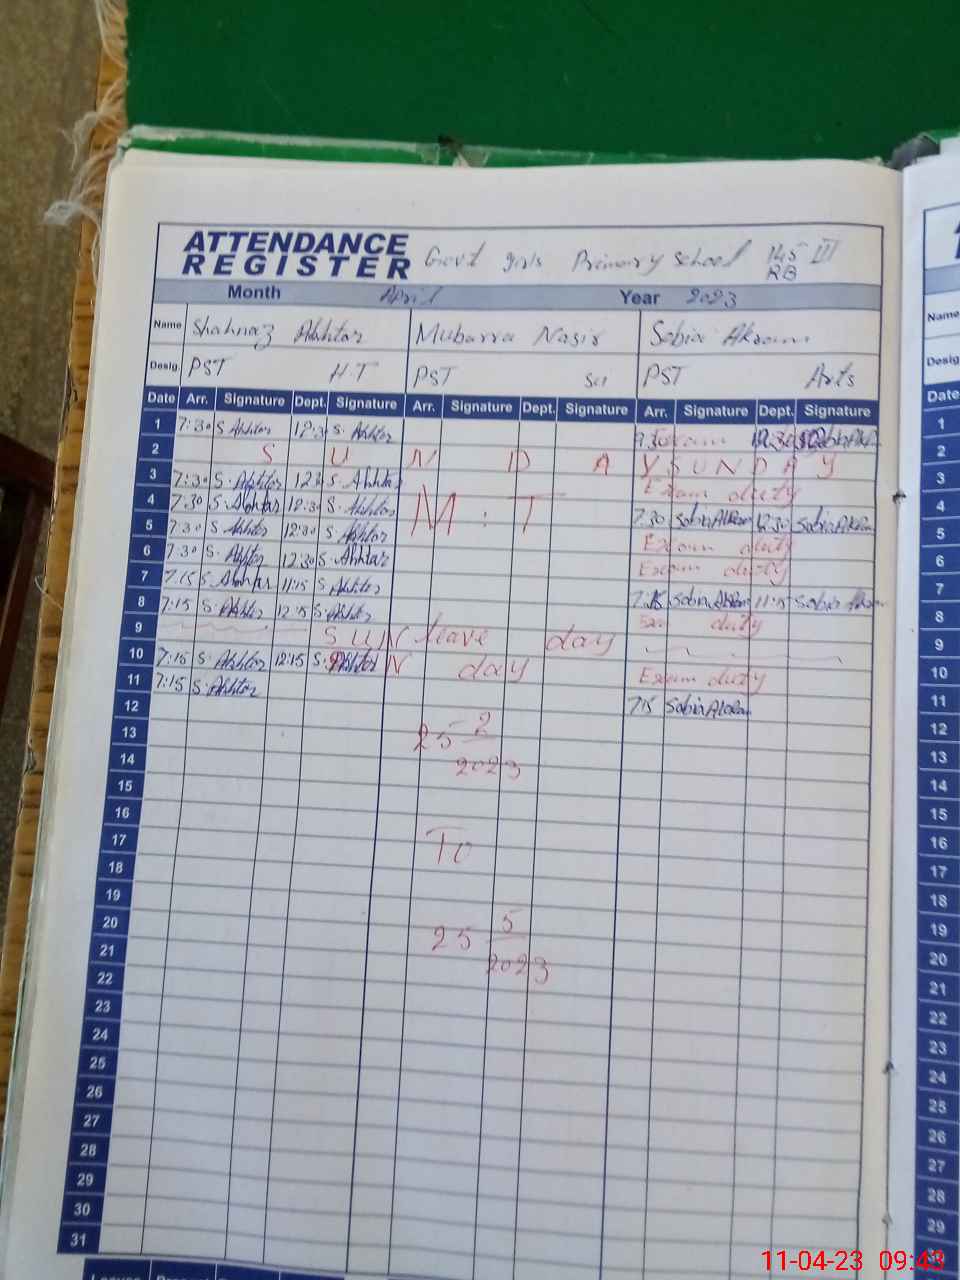 ATTENDANCE REGISTER Govt girls Primary School 145 RB III
Month April Year 2023
Name Shahnaz Akhtar Mubarra Nasir Sobia Akram
Desig. PST H.T PST Sci PST Arts
Date Arr. Signature Dept. Signature Arr. Signature Dept. Signature Arr. Signature Dept. Signature
1 7:30 S.Akhtar 12:30 S.Akhtar 12:30
2 S U N D A Y S U N D A Y
3 7:30 S.Akhtar 12:30 S.Akhtar Exam duty
4 7:30 S.Akhtar 12:30 S.Akhtar M:T 7:30 Sobia Akram 12:30 Sobia Akram
5 7:30 S.Akhtar 12:30 S.Akhtar Exam duty
6 7:30 S.Akhtar 12:30 S.Akhtar Exam duty
7 7:15 S.Akhtar 11:15 S.Akhtar 7:15 Sobia Akram 11:15 Sobia Akram
8 7:15 S.Akhtar 12:15 S.Akhtar duty
9 S U N leave day
10 7:15 S.Akhtar 12:15 S.Akhtar N day Exam duty
11 7:15 S.Akhtar 7:15 Sobia Akram
12
13 25 2
14 2023
15
16
17 To
18
19
20 5
21 25
22 2023
23
24
25
26
27
28
29
30
31
Name
Desig.
Date
1
2
3
4
5
6
7
8
9
10
11
12
13
14
15
16
17
18
19
20
21
22
23
24
25
26
27
28
29
30
11-04-23 09:43